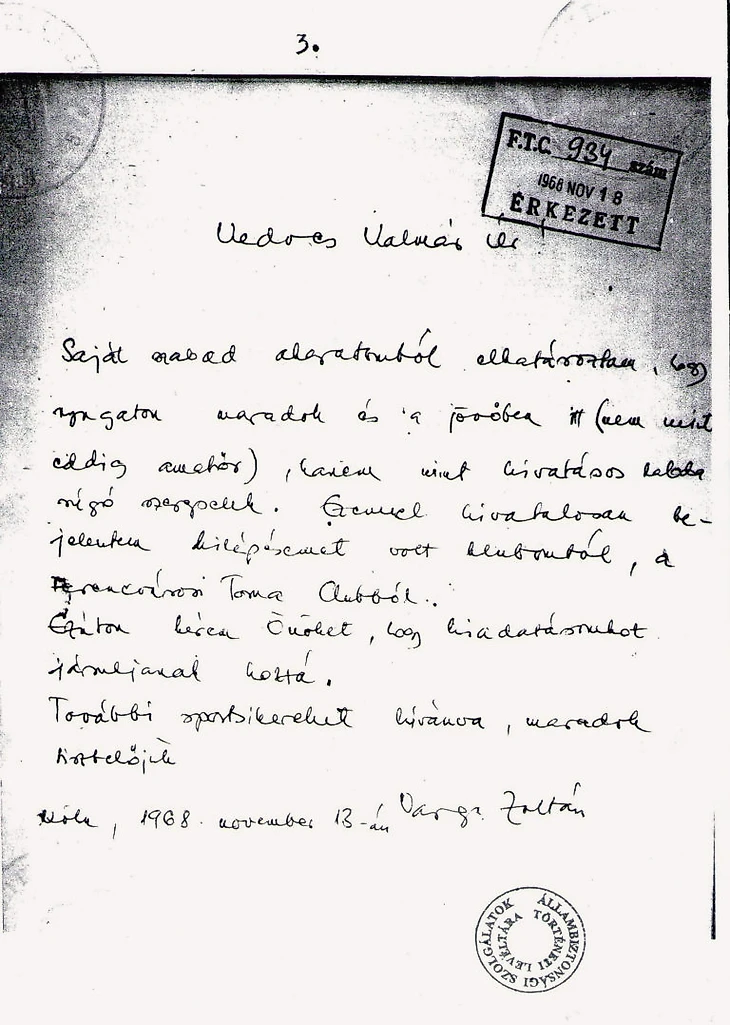 3.
F.T.C. 934 szám
1968 NOV 18
ÉRKEZETT
Vedovcs Kálmán Úr!
Saját szabad akaratomból elhatároztam, hogy
nyugaton maradok és a jövőben itt (nem mint
eddig amatőr), hanem mint hivatásos labda
rúgó szerepelek. Ezennel hivatalosan be-
jelentem kilépésemet volt klubomtól, a
Ferencvárosi Torna Clubból.
Ezúton kérem Önöket, hogy kiadatásomhoz
járuljanak hozzá.
További sportsikereket kívánva, maradok
tisztelőjük
Köln, 1968. november 13-án Varga Zoltán
ÁLLAMBIZTONSÁGI SZOLGÁLATOK
TÖRTÉNETI LEVÉLTÁRA